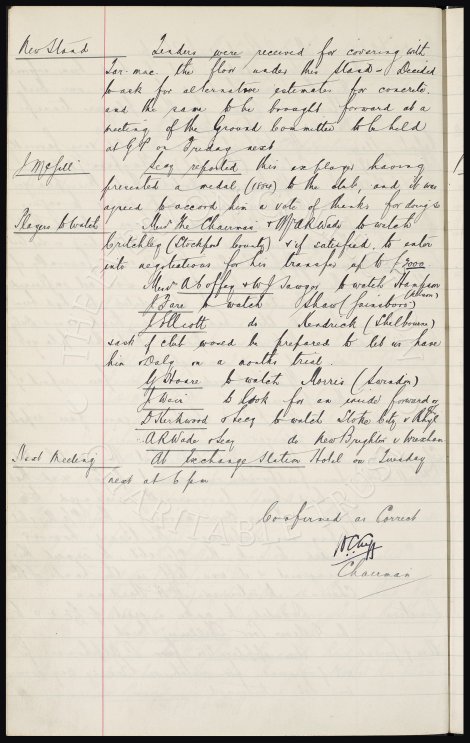 New Stand Tenders were received for covering with
Tar-mac the floor under this Stand - Decided
to ask for alternative estimates for concrete
and the same to be brought forward at a
meeting of the Ground Committee to be held
at G.P on Friday next
J McGill Secy reported this ex player having
presented a medal to the club, and, it was
agreed to accord him a vote of thanks for doing so
Players to watch Messrs The Chairman & A R Wade to watch
Critchley (Stockport County) & if satisfied, to enter
into negotiations for his transfer up to £3000
Messrs A Coffey & W J Sawyer to watch Hampson
(Nelson)
J Fare to watch Shaw (Gainsboro)
J Elliott do Kendrick (Shelbourne)
& ask if club would be prepared to let us have
him & Daly on a months trial.
G Hoare to watch Morris (Swindon)
J Weir to look for an inside forward
D Kirkwood & Secy to watch Stoke City v Rhyl
A R Wade & Secy do New Brighton v Wrexham
Next Meeting At Exchange Station Hotel on Tuesday
next at 6 pm
Confirmed as Correct
Chairman
CHARITABLE TRUST